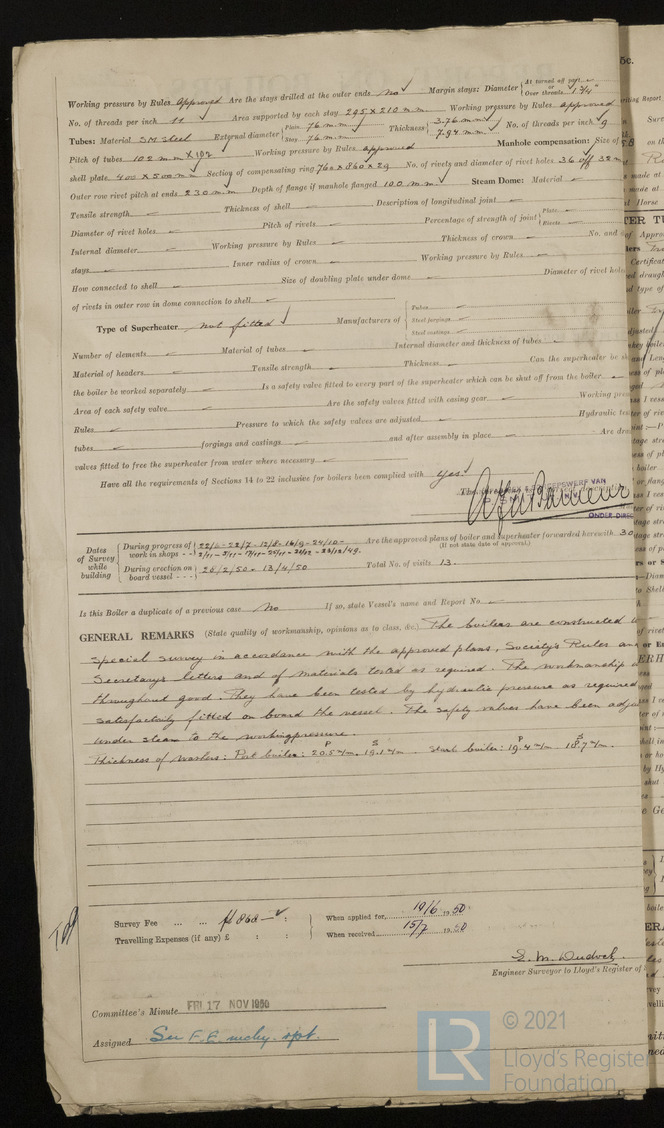 Working pressure by Rules Approved Are the stays drilled at the outer ends No Margin stays: Diameter { At turned off part or Over threads 1 3/4"
No. of threads per inch 11 Area supported by each stay 295 x 210 mm Working pressure by Rules approved
Tubes: Material S.M. Steel External diameter { Plain 76 m.m. Stay 76 m.m. Thickness { 3.76 m.m. 7.94 m.m. No. of threads per inch 9
Pitch of tubes 102 mm x 102 Working pressure by Rules approved Manhole compensation: Size of
shell plate 400 x 500 mm Section of compensating ring 760 x 860 x 29 No. of rivets and diameter of rivet holes 36 off 32 m
Outer row rivet pitch at ends 230 m.m. Depth of flange if manhole flanged 100 m.m. Steam Dome: Material
Tensile strength Thickness of shell Description of longitudinal joint
Diameter of rivet holes Pitch of rivets Percentage of strength of joint { Plate Rivets
Internal diameter Working pressure by Rules Thickness of crown No. and
stays Inner radius of crown Working pressure by Rules
How connected to shell Size of doubling plate under dome Diameter of rivet holes
of rivets in outer row in dome connection to shell
Type of Superheater not fitted Manufacturers of { Tubes Steel forgings Steel castings
Number of elements Material of tubes Internal diameter and thickness of tubes
Material of headers Tensile strength Thickness Can the superheater be
the boiler be worked separately Is a safety valve fitted to every part of the superheater which can be shut off from the boiler
Area of each safety valve Are the safety valves fitted with easing gear Working
Rules Pressure to which the safety valves are adjusted Hydraulic
tubes forgings and castings and after assembly in place Are
valves fitted to free the superheater from water where necessary
Have all the requirements of Sections 14 to 22 inclusive for boilers been complied with Yes
EPSWERF VAN
ONDER-DIREC
Dates of Survey while building { During progress of work in shops - - 22/6 - 22/7 - 12/8 - 16/9 - 24/10 -
Are the approved plans of boiler and superheater forwarded herewith 30
(If not state date of approval.)
During erection on board vessel - - - 28/2/50 - 13/4/50 Total No. of visits 13.
Is this Boiler a duplicate of a previous case No If so, state Vessel's name and Report No.
GENERAL REMARKS (State quality of workmanship, opinions as to class, &c.) The boilers are constructed
special survey in accordance with the approved plans, Society's Rules an
Secretarys letters and of materials tested as required. The workmanship
throughout good. They have been tested by hydraulic pressure as required
satisfactorily fitted on board the vessel. The safety valves have been adju
under steam to the workingpressure.
Thickness of washers: Port boiler: P 20.5 m/m. S 19.1 m/m. Starb boiler: P 19.4 m/m S 18.7 m/m.
Survey Fee ... ... fl 868 - :
When applied for, 19/6 1950
Travelling Expenses (if any) £ : :
When received, 15/7 1950
Engineer Surveyor to Lloyd's Register of
Committee's Minute FRI 17 NOV 1950
Assigned See F.E. mchy. rpt.
© 2021
LR
Lloyd's Register
Foundation